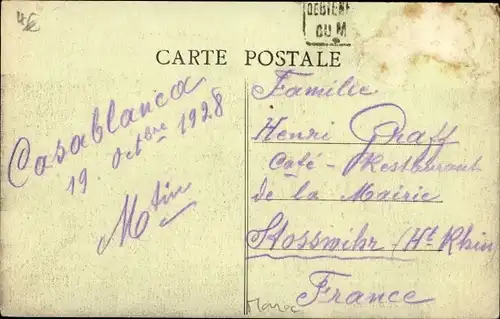 4€
DU M
CARTE POSTALE
Casablanca
19. Octbre 1928
Mtin
Famille
Henri Graff
Café - Restaurant
de la Mairie
Stosswihr (Ht. Rhin
France
Maroc